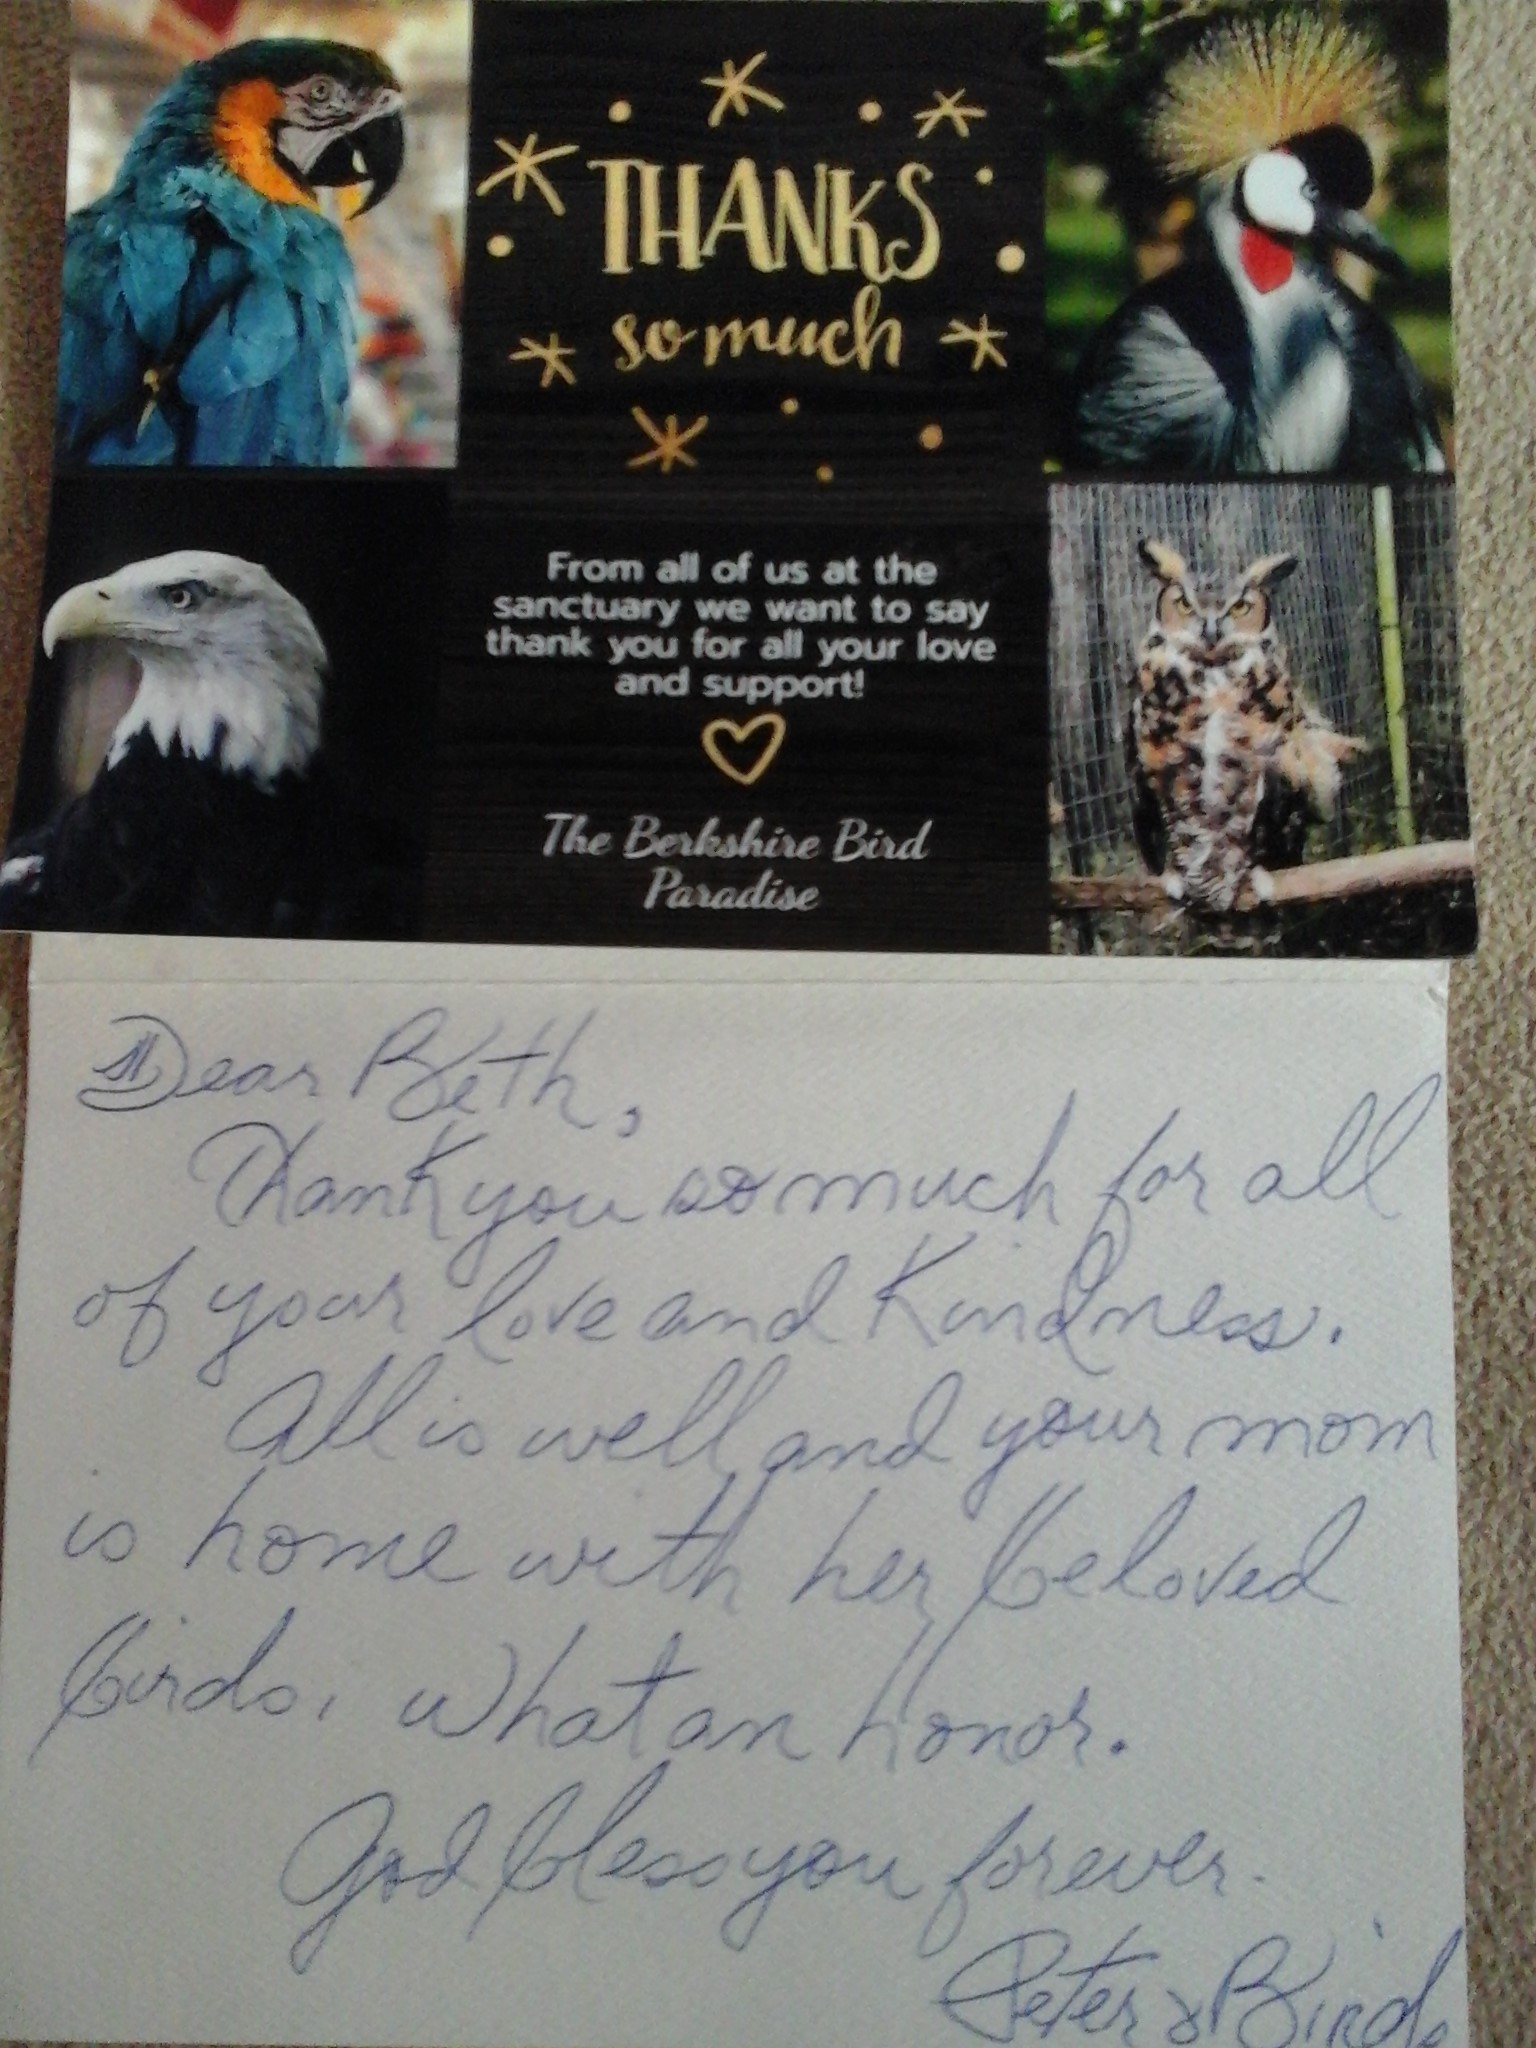 THANKS
so much
From all of us at the
sanctuary we want to say
thank you for all your love
and support!
The Berkshire Bird
Paradise
Dear Beth,
Thank you so much for all
of your love and Kindness.
All is well and your mom
is home with her beloved
birds. What an honor.
God bless you forever.
Peter & Birds